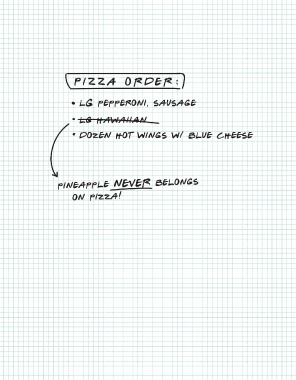 PIZZA ORDER:
• LG PEPPERONI, SAUSAGE
• LG HAWAIIAN
• DOZEN HOT WINGS W/ BLUE CHEESE
PINEAPPLE NEVER BELONGS
ON PIZZA!